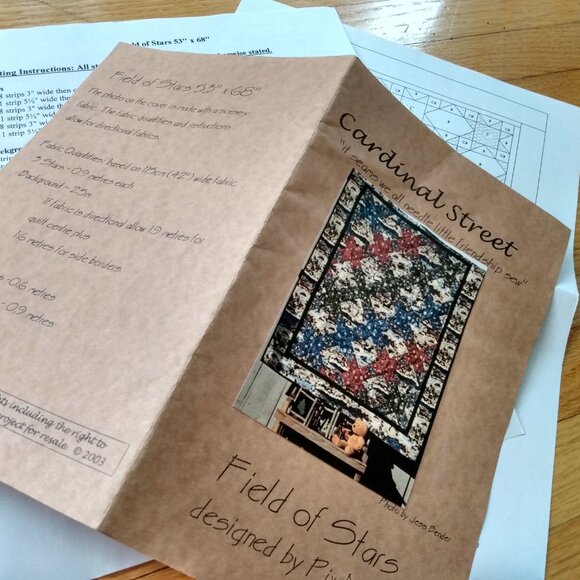 Field of Stars 53" x 68"
ting Instructions: All st
otherwise stated.
8 strips 3" wide then c
1 strip 5½" wide the
8 strips 3" wide the
1 strip 5½"
8 strips 3" wide
1 strip 5½"
Field of Stars 53" x 68"
The photo on the cover is made with a scenery
fabric. The fabric quantities and instructions
allow for directional fabrics.
Fabric Quantities: based on 115cm (42") wide fabric
3 Stars - 0.9 metres each
Background - 2.5m
If fabric is directional allow 1.9 metres for
quilt centre plus
1.6 metres for side borders
- 0.6 metres
- 0.9 metres
ts including the right to
project for resale. © 2003
Cardinal Street
"It seams we all needle little friendship sew"
Photo by Jess Bender
Field of Stars
designed by